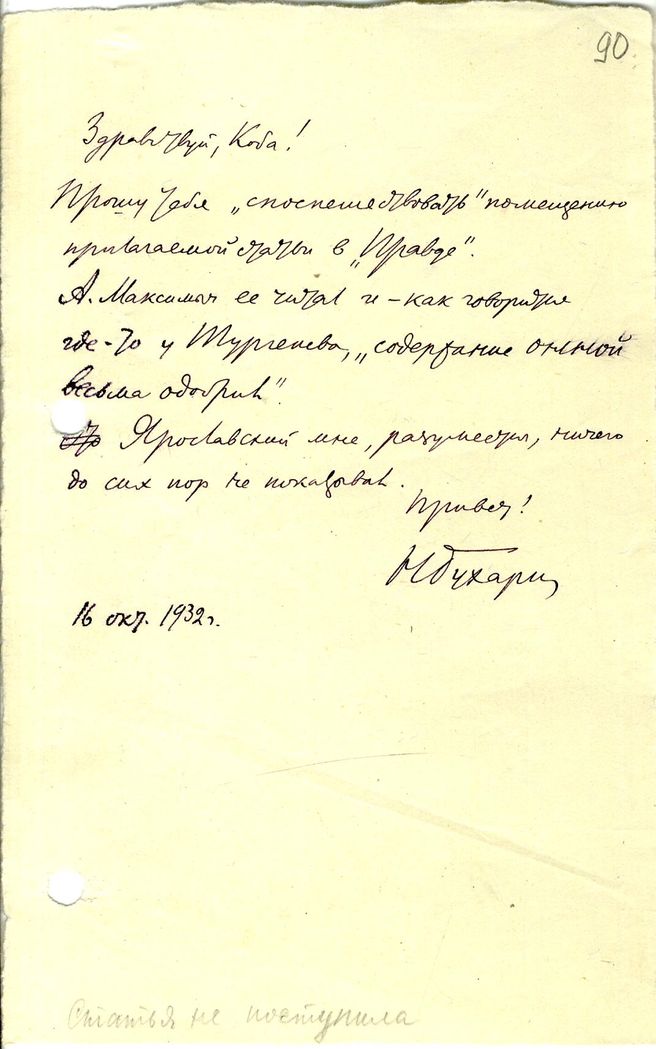 90
Здравствуй, Коба!
Прошу тебя „споспешествовать" помещению
прилагаемой статьи в „Правде".
А. Максимыч ее читал и – как говорится
где-то у Тургенева, „содержание онной
весьма одобрил".
Ярославский мне, разумеется, ничего
до сих пор не показывал.
Привет!
Н Бухарин
16 окт. 1932 г.
Статья не поступила